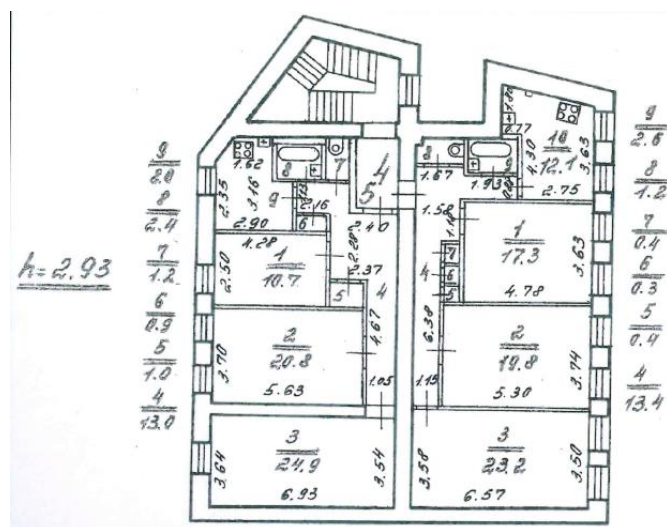 h=2.93
9
8.0
8
2.4
7
1.2
6
0.9
5
1.0
4
13.0
1.62
2.35
3.16
9
2.90
8
7
2.16
6
4
5
2.40
4.28
1
10.7
2.50
2.28
2.37
5
4
4.67
2
20.8
3.70
5.63
1.05
3
24.9
3.64
6.93
3.54
1.80
0.77
10
12.1
4.30
3.63
2.75
8
1.67
9
1.93
1.58
1
17.3
3.63
4.78
4
7
6
5
6.38
2
19.8
3.74
5.30
1.15
3
23.2
3.58
6.57
3.50
9
2.6
8
1.2
7
0.4
6
0.3
5
0.4
4
13.4